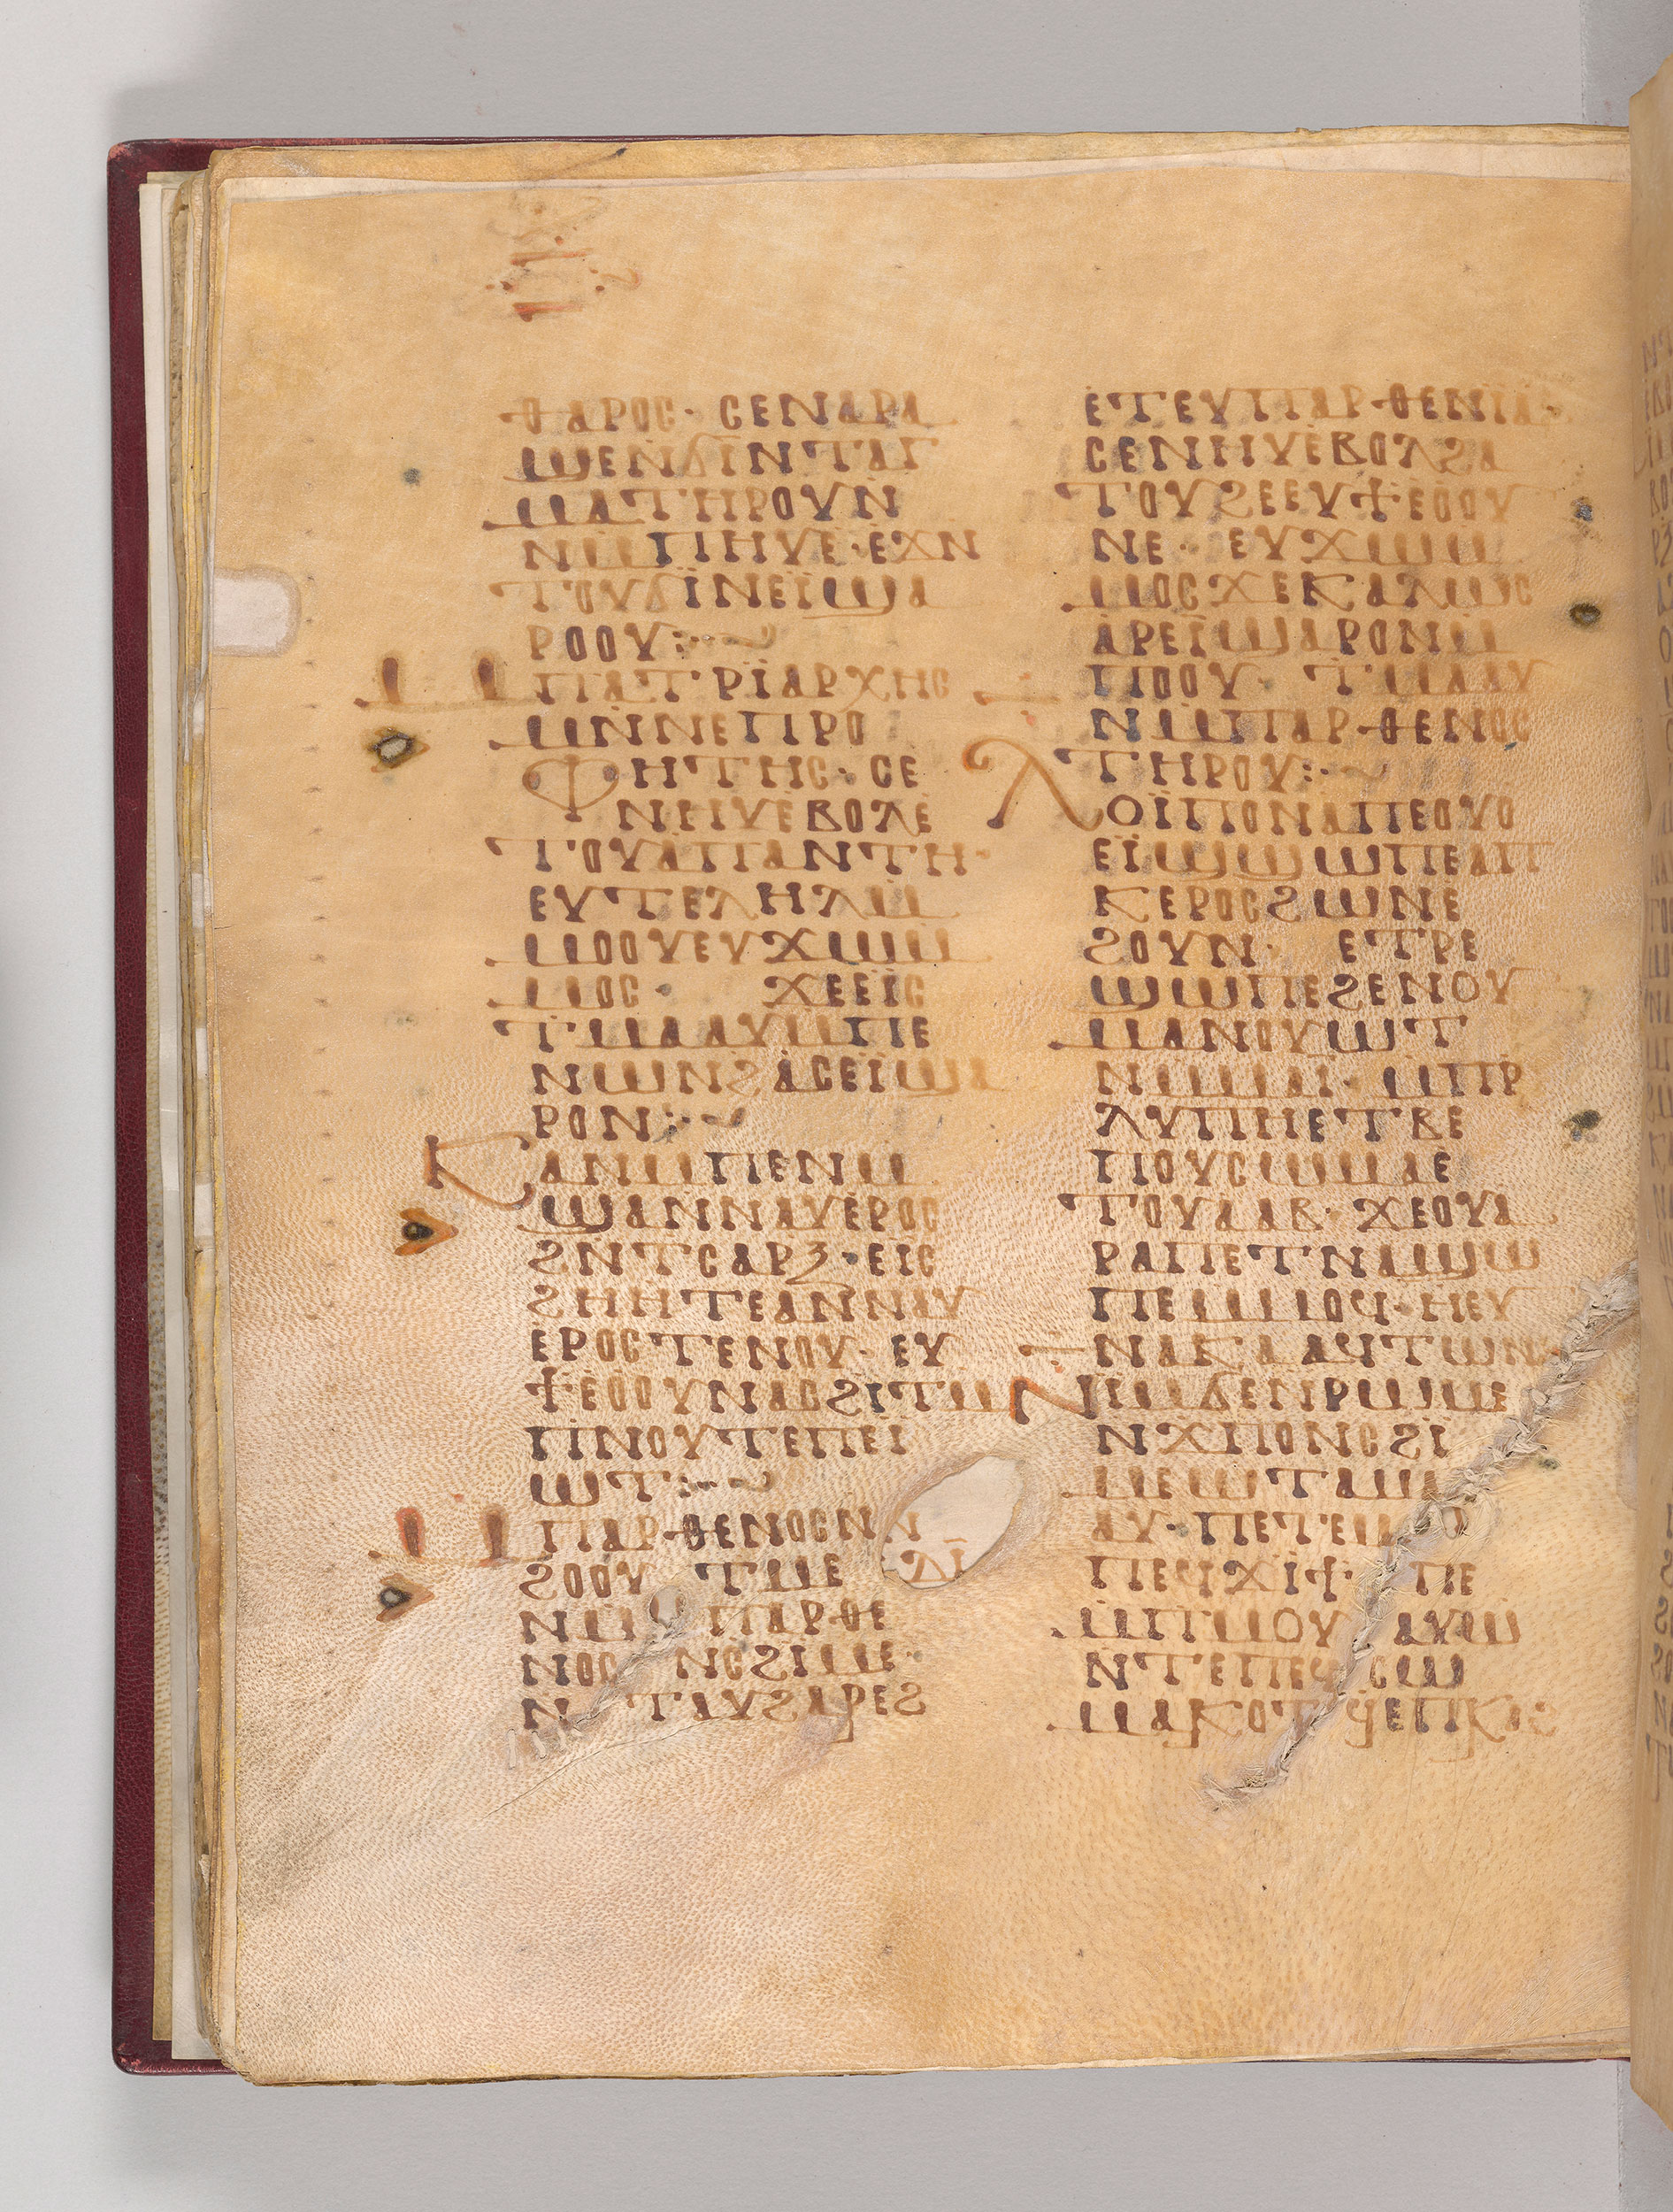 ⲑⲁⲣⲟⲥ· ⲥⲉⲛⲁⲣⲁ
ϣⲉⲛϭⲓⲛⲧⲁⲅ
ⲙⲁⲧⲏⲣⲟⲩⲛ̇
ⲛⲙ̇ⲡⲏⲩⲉ·ⲉϫⲛ
ⲧⲟⲩϭⲓⲛⲉⲓ̈ϣⲁ
ⲣⲟⲟⲩ:·~
ⲙⲡⲁⲧⲣⲓ̈ⲁⲣⲭⲏⲥ
ⲙⲛ̇ⲛⲉⲡⲣⲟ
ⲫⲏⲧⲏⲥ· ⲥⲉ
ⲛⲏⲩⲉ̇ⲃⲟⲗⲉ̇
ⲧⲟⲩⲁ̇ⲡⲁⲛⲧⲏ·
ⲉⲩⲧⲉⲗⲏⲗⲙ̇
ⲙⲟⲟⲩⲉⲩϫⲱⲙ̇
ⲙⲟⲥ· ϫⲉⲉⲓ̈ⲥ
ⲧⲙⲁⲁⲩⲙ̇ⲡⲉ
ⲛⲱⲛϩⲁ̇ⲥⲉⲓ̈ϣⲁ
ⲣⲟⲛ:·~
ⲕⲁⲛⲙ̇ⲡⲉⲛⲙ̇
ϣⲁⲛⲛⲁⲩⲉ̇ⲣⲟⲥ
ϩⲛⲧⲥⲁⲣⲝ·ⲉⲓ̈ⲥ
ϩⲏⲏⲧⲉⲁⲛⲛⲁⲩ
ⲉ̇ⲣⲟⲥⲧⲉⲛⲟⲩ· ⲉⲩ
ϯⲉ̇ⲟⲟⲩⲛⲁⲥϩⲓⲧⲙ
ⲡⲛⲟⲩⲧⲉⲡⲉⲓ̈
ⲱⲧ:·~
ⲙⲡⲁⲣⲑⲉⲛⲟⲥⲛⲛ
ϩⲟⲟⲩ ⲧⲙⲉ
ⲛⲙ ⲡⲁⲣⲑⲉ
ⲛⲟⲥ ⲛⲥϩⲓⲙⲉ·
ⲛ ⲧⲁⲩϩⲁⲣⲉϩ
ⲉ̇ⲧⲉⲩⲡⲁⲣⲑⲉⲛⲓ̈ⲁ·
ⲥⲉⲛⲏⲩⲉ̇ⲃⲟⲗϩⲁ
ⲧⲟⲩϩⲉⲉⲩϯⲉ̇ⲟⲟⲩ
ⲛⲉ· ⲉⲩϫⲱⲙ̇
ⲙⲟⲥϫⲉⲕⲁⲗⲱⲥ
ⲁ̇ⲣⲉⲓ̈ϣⲁⲣⲟⲛⲙ̇
ⲡⲟⲟⲩ· ⲧⲙⲁⲁⲩ
ⲛⲙ̇ⲡⲁⲣⲑⲉⲛⲟⲥ
ⲧⲏⲣⲟⲩ:·~
ⲗⲟⲓ̈ⲡⲟⲛⲁⲡⲉⲟⲩⲟ
ⲉⲓ̈ϣϣⲱⲡⲉⲁⲡ
ⲕⲉⲣⲟⲥϩⲱⲛⲉ
ϩⲟⲩⲛ· ⲉⲧⲣⲉ
ϣⲱⲡⲉϩⲉⲛⲟⲩ
ⲙⲁⲛⲟⲩⲱⲧ
ⲛⲙ̇ⲙⲁⲓ· ⲙ̇ⲡⲣ̇
ⲗⲩⲡⲏⲉⲧⲃⲉ
ⲡⲟⲩⲥⲱⲙⲁⲉ
ⲧⲟⲩⲁⲁⲃ· ϫⲉⲟⲩⲁ
ⲣⲁⲡⲉⲧⲛⲁϣϣ
ⲡⲉⲙⲙⲟϥ·ⲏⲉⲩ
ⲛⲁⲕⲁⲁϥⲧⲱⲛ·
ⲛⲓⲙϭⲉⲛⲣⲱⲙⲉ
ⲛϫⲡⲟⲛⲥϩⲓ
ⲙⲉⲱⲧⲁⲙ
ⲁⲩ·ⲡⲉⲧⲉⲙ
ⲡⲉϥϫⲓϯ· ⲡⲉ
ⲙ̇ⲡⲙⲟⲩ ⲁⲩⲱ
ⲛⲧⲉⲡⲉϥⲥⲱ
ⲙⲁⲕⲟⲧϥⲉⲡⲕⲁϩ